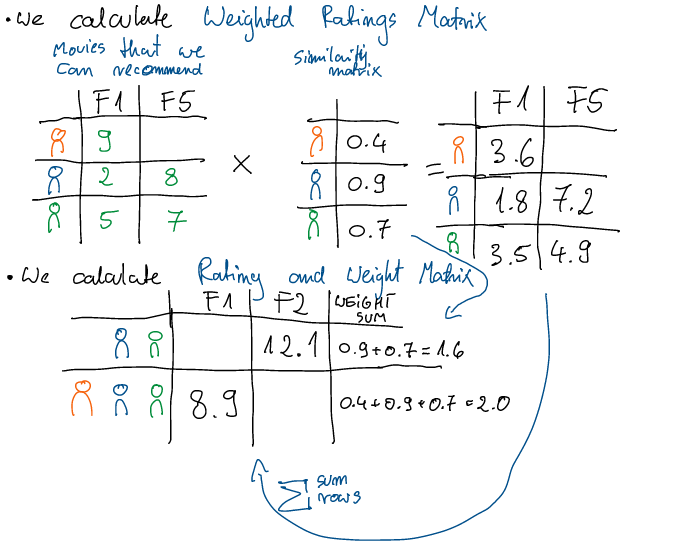 • We calculate Weighted Ratings Matrix
Movies that we
Can recommend
Similarity
matrix
F1 F5
9
2 8
5 7
×
0.4
0.9
0.7
=
F1 F5
3.6
1.8 7.2
3.5 4.9
• We calculate Rating and Weight Matrix
F1 F2 WEIGHT
SUM
12.1 0.9+0.7=1.6
8.9 0.4+0.9+0.7=2.0
∑ sum
rows